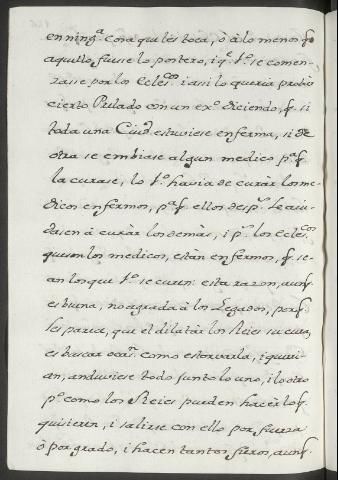 en ning.ª cosa que les toca, ò à lo menos q̃
aquello fuese lo postero, i q.e 1.º se comen-
zasse por los Ecles.cos i assi lo queria probar
cierto Prelado con un ex.º diciendo, q̃ si
toda una Ciud estuviese enferma, si de
otra se embiase algun medico p.ª q̃
la curase, lo 1.º havia de curàr los me-
dicos enfermos, p.ª q̃ ellos desp.s le aiu-
dasen à curàr los demàs, i p.s los Ecles.cos
que son los medicos, estàn enfermos, q̃ se-
an los que 1.º se curen: esta razon, aunq̃
es buena, no agrada à los Legados, porq̃
les parece, que el dilatàr los Reies su cura
es buscar ocas.n como estorvarla, i querri-
an, anduviese todo junto lo uno, i lo otro
p.s como los Reies pueden hacèr lo q̃
quisieren, i salirse con ello por fuerza
ò por grado, i hacen tantos fieros, aunq̃